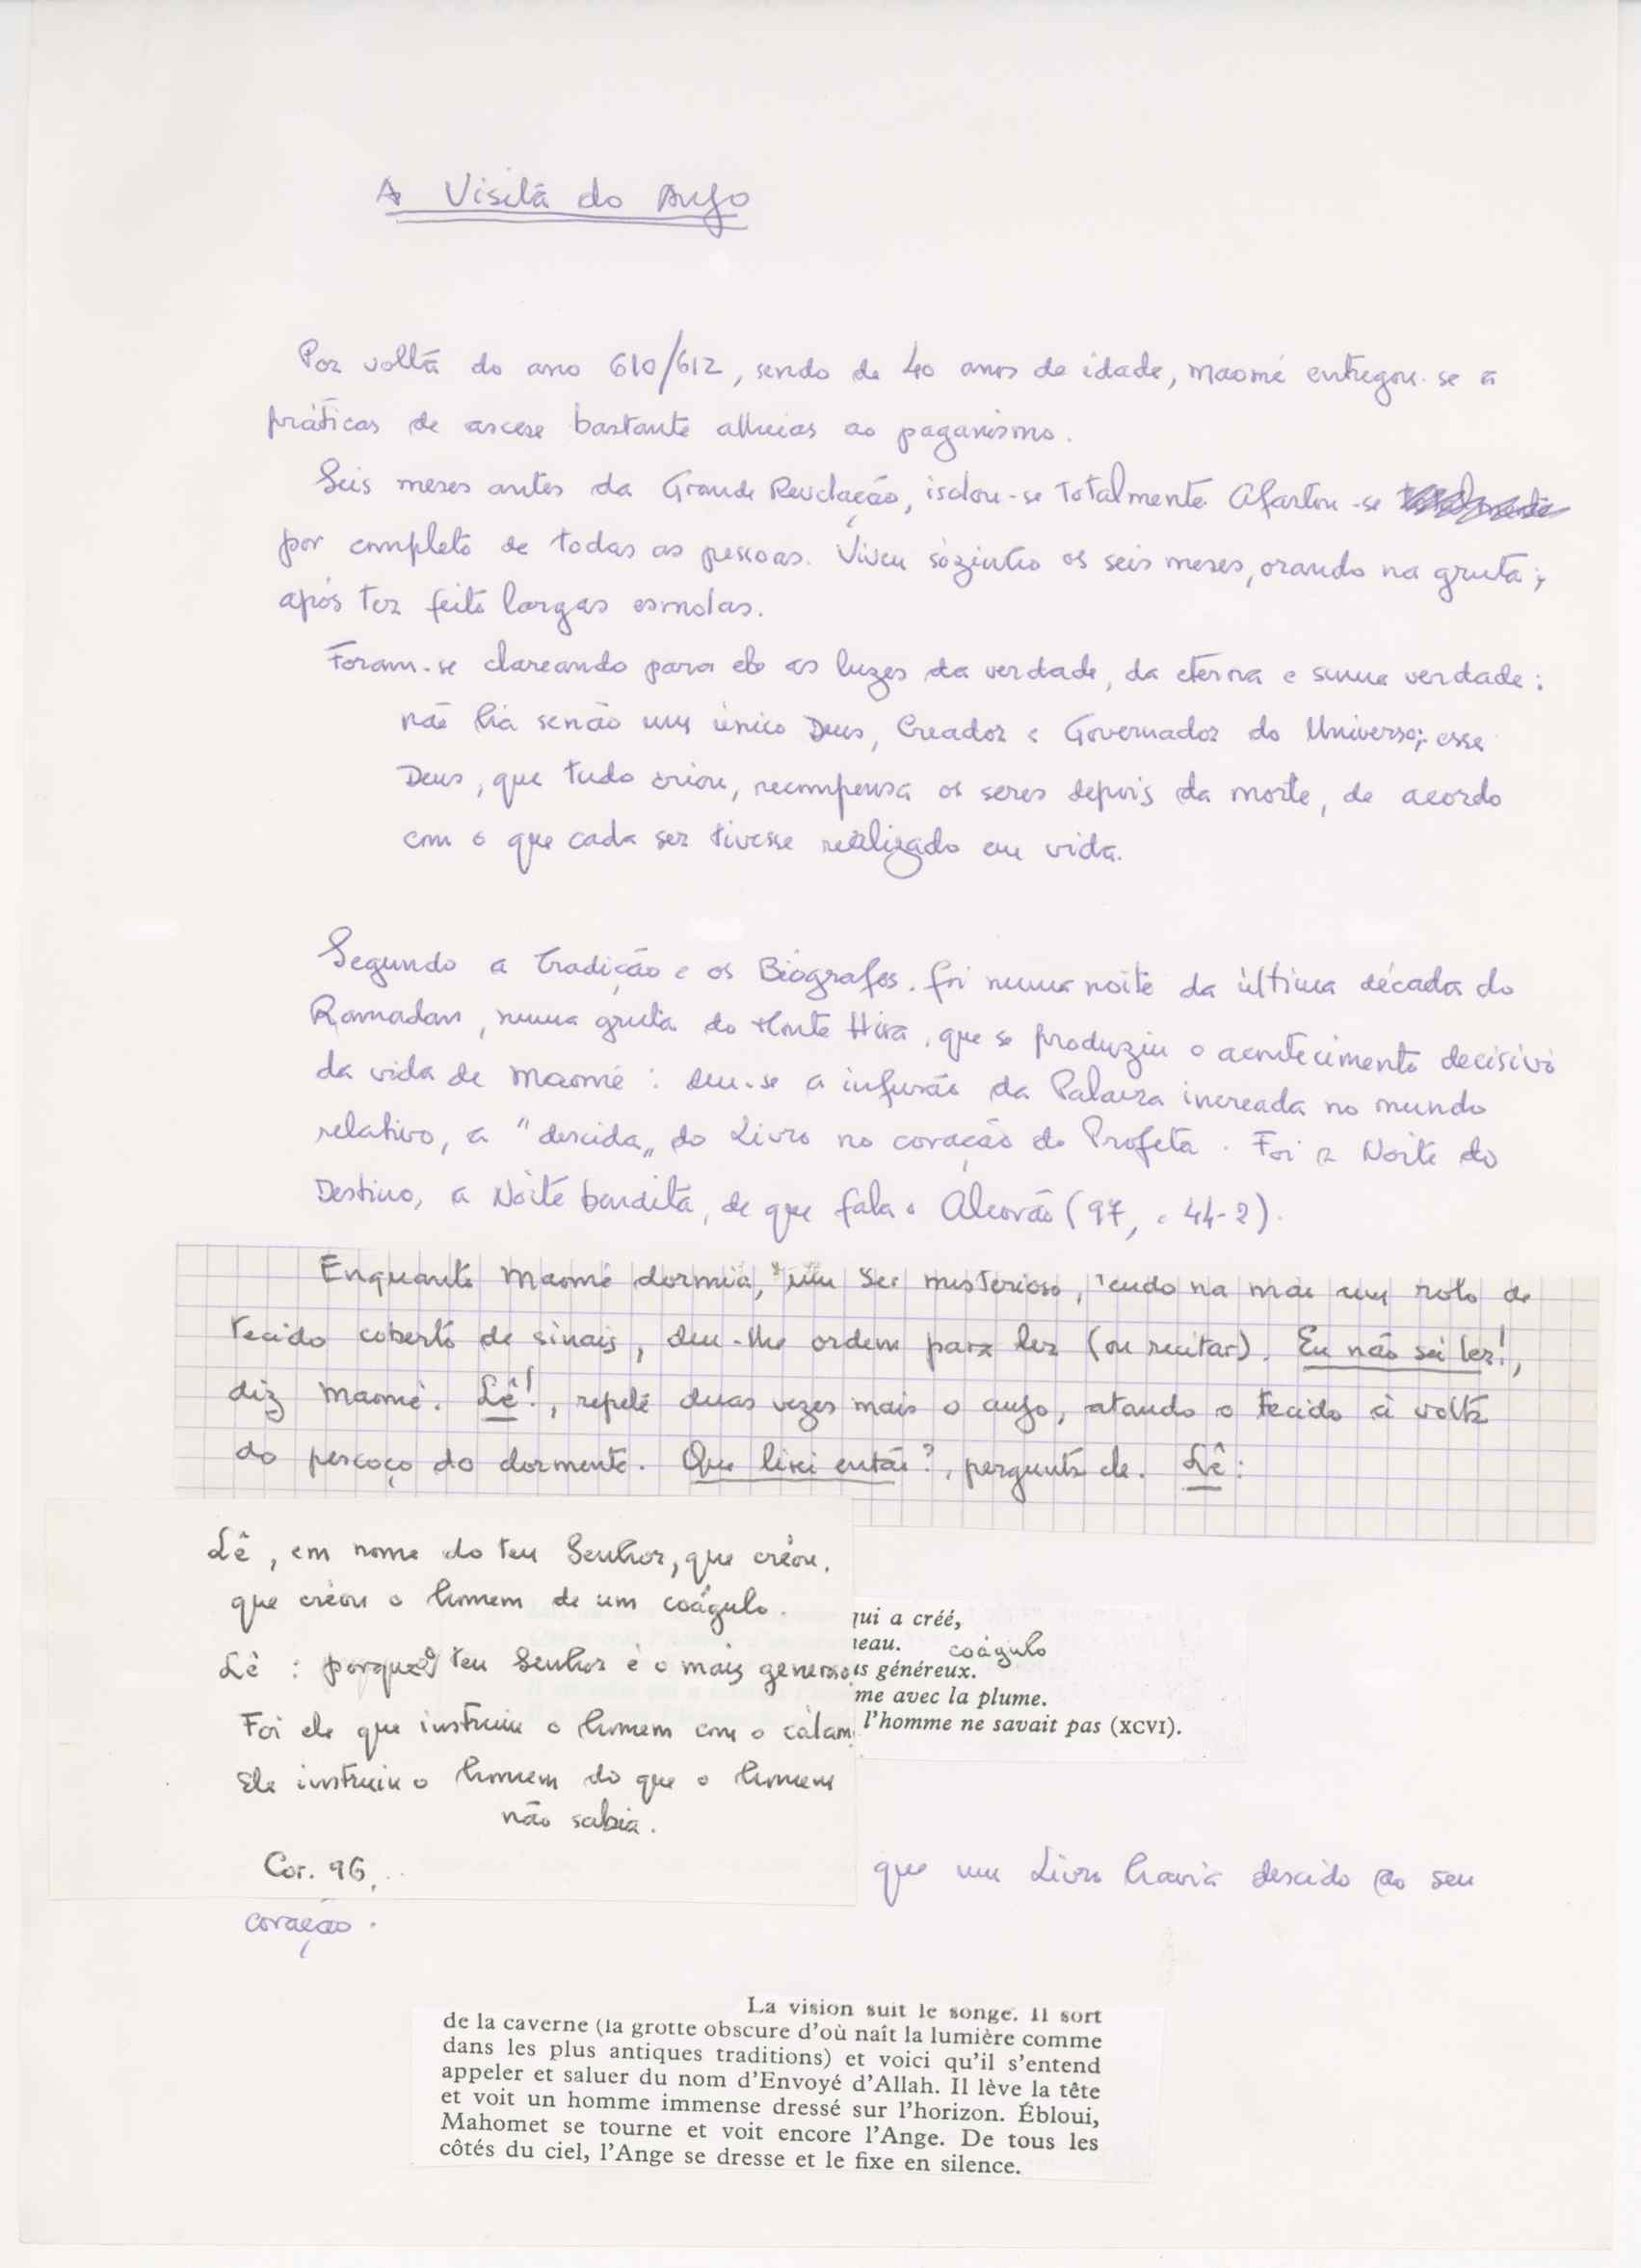 A Visita do Anjo
Por volta do ano 610/612, sendo de 40 anos de idade, Maomé entregou-se a
práticas de ascese bastante alheias ao paganismo.
Seis meses antes da Grande Revelação, isolou-se totalmente. Afastou-se
por completo de todas as pessoas. Viveu sòzinho os seis meses, orando na gruta;
após ter feito largas esmolas.
Foram-se clareando para ele as luzes da verdade, da eterna e suma verdade:
não há senão um único Deus, Creador e Governador do Universo; esse
Deus, que tudo criou, recompensa os seres depois da morte, de acordo
com o que cada ser tivesse realizado em vida.
Segundo a Tradição e os Biógrafos, foi numa noite da última década do
Ramadan, numa gruta do Monte Hira, que se produziu o acontecimento decisivo
da vida de Maomé: deu-se a infusão da Palavra increada no mundo
relativo, a "descida" do Livro no coração do Profeta. Foi a Noite do
Destino, a Noite bendita, de que fala o Alcorão (97, e 44-2).
Enquanto Maomé dormia, um Ser misterioso, tendo na mão um rolo de
tecido coberto de sinais, deu-lhe ordem para ler (ou recitar). Eu não sei ler!,
diz Maomé. Lê!, repete duas vezes mais o anjo, atando o tecido à volta
do pescoço do dormente. Que lirei então?, pergunta ele. Lê:
Lê, em nome do teu Senhor, que créou,
que créou o homem de um coágulo.
Lê: porque o teu Senhor é o mais generoso
Foi ele que instruiu o homem com o cálam
Ele instruiu o homem do que o homem
não sabia.
Cor. 96,
qui a créé,
neau. coágulo
us généreux.
me avec la plume.
l'homme ne savait pas (XCVI).
que um Livro havia descido ao seu
coração.
La vision suit le songe. Il sort
de la caverne (la grotte obscure d'où naît la lumière comme
dans les plus antiques traditions) et voici qu'il s'entend
appeler et saluer du nom d'Envoyé d'Allah. Il lève la tête
et voit un homme immense dressé sur l'horizon. Ébloui,
Mahomet se tourne et voit encore l'Ange. De tous les
côtés du ciel, l'Ange se dresse et le fixe en silence.